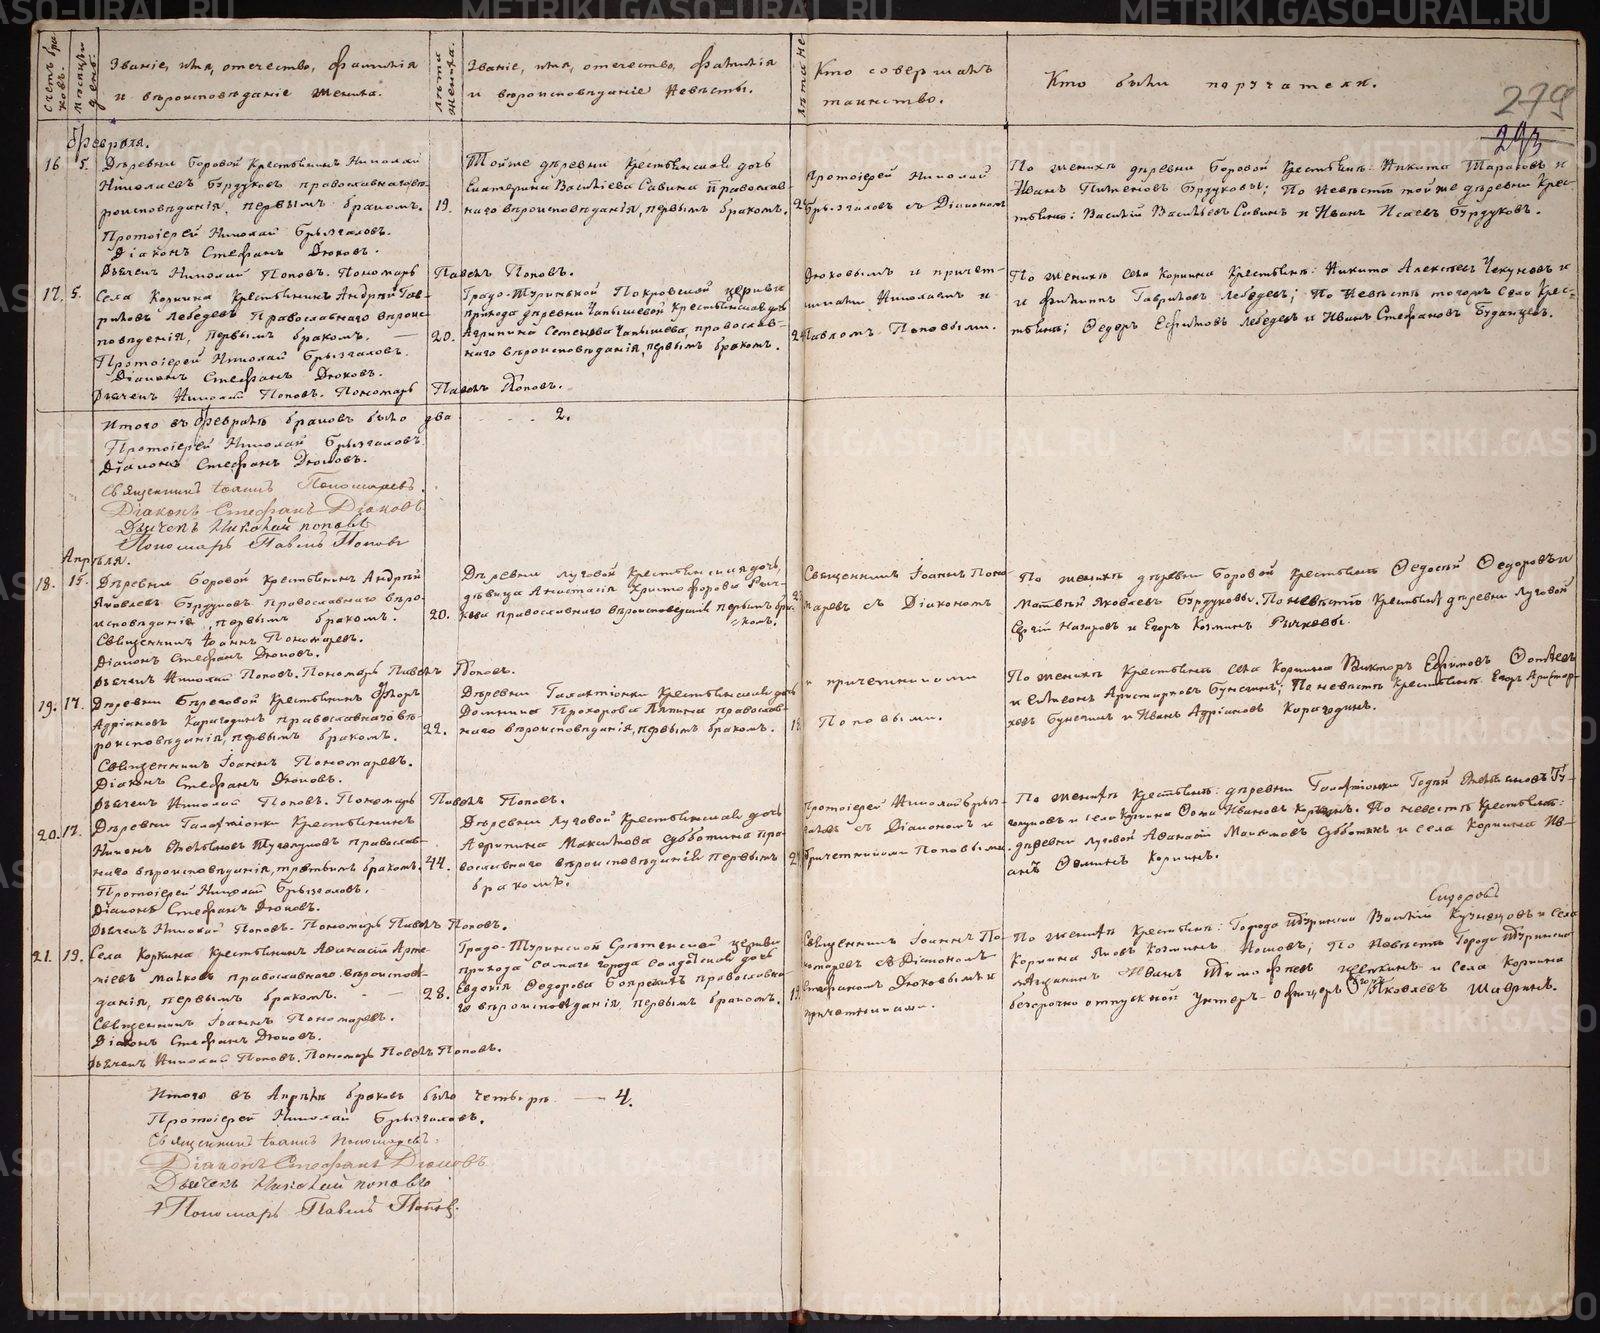 Счетъ браковъ.
Мѣсяцъ и день.
Званіе, имя, отечество, фамилія
и вѣроисповѣданіе жениха.
Лѣта жениха.
Званіе, имя, отечество, фамилія
и вѣроисповѣданіе невѣсты.
Лѣта не
Кто совершалъ
таинство.
Кто были поручатели.
279
293
Февраля.
16 5. Деревни Боровой Крестьянинъ Николай
Николаевъ Бурдуковъ православнаго вѣ-
роисповѣданія, первымъ бракомъ. 19.
Протоіерей Николай Брызгаловъ.
Діаконъ Стефанъ Дюковъ.
Дьячекъ Николай Поповъ. Пономарь Павелъ Поповъ.
Тойже деревни крестьянская дочь
Екатерина Василіева Савина православ-
наго вѣроисповѣданія, первымъ бракомъ.
Протоіерей Николай
Брызгаловъ съ Діакономъ
По женихѣ деревни Боровой Крестьян: Никита Тарасовъ и
Иванъ Пименовъ Бурдуковы; По Невѣстѣ той же деревни Крес-
тьяна: Василій Васильевъ Савинъ и Иванъ Исаевъ Бурдуковъ.
17. 5. Села Коркина Крестьянинъ Андрей Гав-
риловъ Лебедевъ Православнаго вѣроис-
повѣденія, первымъ бракомъ. 20.
Протоіерей Николай Брызгаловъ.
Діаконъ Стефанъ Дюковъ.
Дьячекъ Николай Поповъ. Пономарь Павелъ Поповъ.
Градо-Туринской Покровской церкви
прихода деревни Чапышевой Крестьянская дочь
Агрипина Семенова Чапышева, православ-
наго вѣроисповѣданія, первымъ бракомъ.
Дюковымъ и причет-
никами Николаемъ и
Павломъ Поповыми.
По женихѣ села Коркина Крестьяне: Никита Алексѣевъ Чекуновъ и
и Филипъ Гавриловъ Лебедевъ; По Невѣстѣ тогожъ Села Крес-
тьяна; Федоръ Ефимовъ Лебедевъ и Иванъ Стефановъ Буданцевъ.
Итого въ Февралѣ браковъ было два 2.
Протоіерей Николай Брызгаловъ.
Діаконъ Стефанъ Дюковъ.
Священникъ Іоаннъ Пономаревъ.
Діаконъ Стефанъ Дюковъ.
Дьячекъ Николай Поповъ
Пономарь Павелъ Поповъ
Апрѣля.
18. 15. Деревни Боровой Крестьянинъ Андрей
Яковлевъ Бурдуковъ православнаго вѣро-
исповѣданія, первымъ бракомъ. 20.
Священникъ Іоаннъ Пономаревъ.
Діаконъ Стефанъ Дюковъ.
Дьячекъ Николай Поповъ. Пономарь Павелъ Поповъ.
Деревни Луговой Крестьянская дочь,
дѣвица Анастасія Христофорова Рыч-
кова православнаго вѣроисповеданія первымъ бра-
комъ.
Священникъ Іоаннъ Поно-
маревъ съ Діакономъ
По женихѣ деревни Боровой Крестьяна Федосей Федоровъ и
Матвѣй Яковлевъ Бурдуковы. По невѣстѣ Крестьяна деревни Луговой
Сергій Назаровъ и Егоръ Козминъ Рычковы.
19. 17. Деревни Береговой Крестьянинъ Флоръ
Адріановъ Карагодинъ православнаго вѣ-
роисповѣданія, первымъ бракомъ. 22.
Священникъ Іоаннъ Пономаревъ.
Діаконъ Стефанъ Дюковъ.
Дьячекъ Николай Поповъ. Пономарь Павелъ Поповъ.
Деревни Галактіонки Крестьянская дочь
Домника Прохорова Ляпина православ-
наго вѣроисповѣданія, первымъ бракомъ. 18
и причетниками
Поповыми.
По женихѣ Крестьяна села Коркина Викторъ Ефимовъ Фотѣевъ
и Симеонъ Аристарховъ Бунегинъ; По невѣстѣ Крестьяна Егоръ Аристар-
ховъ Бунегинъ и Иванъ Адріановъ Карагодинъ.
20. 17. Деревни Галактіонки Крестьянинъ
православ-
наго вѣроисповѣданія, третьимъ бракомъ. 44.
Протоіерей Николай Брызгаловъ.
Діаконъ Стефанъ Дюковъ.
Дьячекъ Николай Поповъ. Пономарь Павелъ Поповъ.
Деревни Луговой Крестьянская дочь
Агрипина Максимова Субботина пра-
вославнаго вѣроисповѣданія первымъ
бракомъ.
Протоіерей Николай Брыз-
галовъ съ Діакономъ и
причетниками Поповыми.
По женихѣ Крестьян: деревни Галактіонки
и села Коркина Фома Ивановъ По невестѣ Крестьян:
деревни Луговой Афанасій Максимовъ Субботинъ и села Коркина Ив-
анъ Фоминъ Коркинъ.
21. 19. Села Коркина Крестьянинъ Афанасій Арте-
міевъ Малковъ православнаго вѣроиспов-
данія, первымъ бракомъ. 28.
Священникъ Іоаннъ Пономаревъ.
Діаконъ Стефанъ Дюковъ.
Дьячекъ Николай Поповъ. Пономарь Павелъ Поповъ.
Градо-Туринской Срѣтенской церкви
прихода самаго города Солдатская дочь
Евдокія Федорова православна-
го вѣроисповѣданія, первымъ бракомъ. 19
Священникъ Іоаннъ По-
номаревъ съ Діакономъ
Стефаномъ Дюковымъ и
причетниками.
Сидоровъ
По женихѣ Крестьян: Города Туринска Василій Кузнецовъ и села
Коркина Яковъ Козминъ По Невѣстѣ Города Туринска
мѣщанинъ Иванъ Тимофеев Щепкинъ и села Коркина
безсрочно отпускной унтеръ-офицеръ Егоръ Яковлевъ Шавринъ.
Итого въ Апрѣлѣ браковъ было четыре 4.
Протоіерей Николай Брызгаловъ.
Священникъ Іоаннъ Пономаревъ.
Діаконъ Стефанъ Дюковъ
Дьячекъ Николай Поповъ
Пономарь Павелъ Поповъ.
METRIKI.GASO-URAL.RU